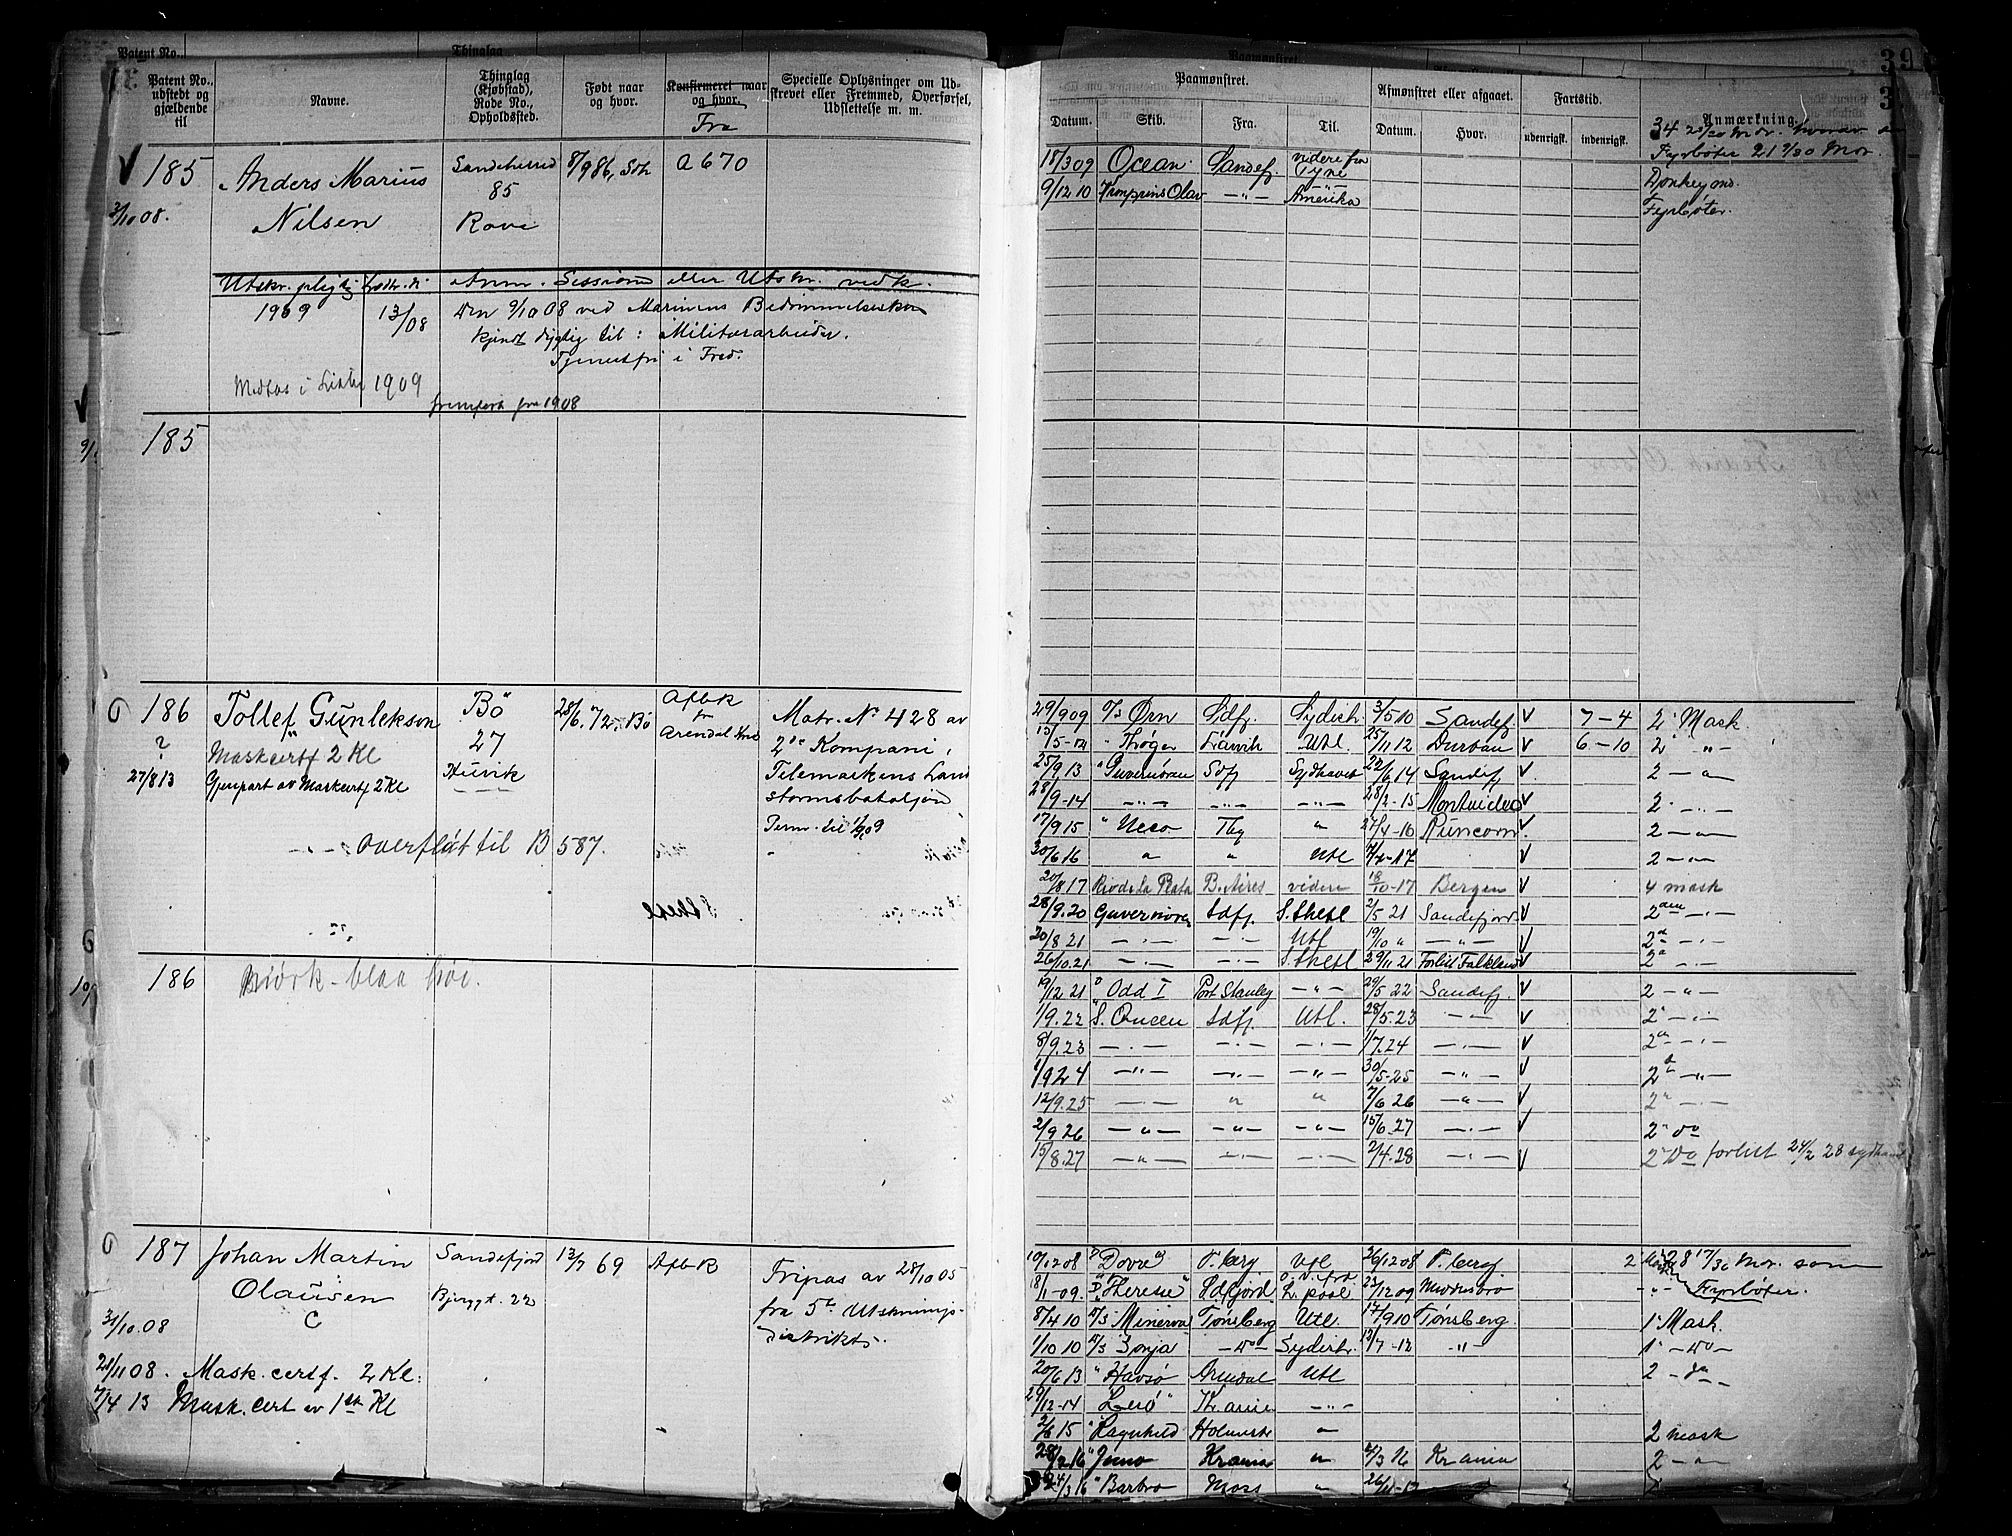 Patent No., udstedt og gjældende til
Navne.
Thinglag (Kjøbstad), Rode No., Opholdssted.
Født naar og hvor.
Konfirmeret naar og hvor.
Fra
Specielle Oplysninger om Udskrevet eller Fremmed, Overførsel, Udslettelse m. m.
185
Anders Marius
Nilsen
Sandeherred
85
8/9 86, Sdh
A 670
3/10 08.
1909
13/08
Den 9/10 08 ved Marinens
kjendt dygtig til: Militærarbeider.
Tjenestfri i Fred.
1909
fra 1908
185
186
Tollef Gunlekson
Bö
28/6. 72, Bö
Afbk
fr
Arendal
Matr. No 428 av
?
Maskcertf 2 Kl
27
2de Kompani,
27/8 13
Gjenpart av Maskcertf 2 Kl
Huvik
Telemarkens Land
stormsbataljon
Perm. til 1/9 09
overfløt til B 587.
186
Mörk - blaa
187
Johan Martin
Olausen
C
Sandefjord
Bjerggt. 22
13/7 69
Afb R
Fripas av 28/10 05
fra 5te Utskrivnings-
distrikts.
31/10.08
21/11 08. Mask. certf. 2 Kl.
7/4 13 Mask. cert av 1ste Kl
Paamønstret.
Afmønstret eller afgaaet.
Fartstid.
Anmærkning.
Datum.
Skib.
Fra.
Til.
Datum.
Hvor.
udenrigsk.
indenrigsk.
39
18/3 09 Ocean Sandef. videre fra Tyne
Fyrbøter 21 9/30 Mdr.
9/12 10 Kronprins Olav -"- Amerika
Donkeymd.
Fyrbøter
29/9 09 S/S Ørn Sdfj. Sydish. 3/5 10 Sandef. V 7-4 2. Mask.
15/5-12 " Thøger Larvik Utl. 25/11 12 Durban V 6-10 2 -"-
25/9 13 " Guvernøren Sdfj Sydhavet 22/6 14 Sandef V 2 -"-
28/9-14 -"- -"- -"- 28/2-15 Montvideo V 2 -"-
17/9 15 " Neso Tbg " 27/4-16 Runcorn V 2 -"-
30/6 16 " " Utl 7/4-17 V 2 -"-
20/8 17 Rio de La Plata B. Aires videre 18/10-17 Bergen V 4 mask
28/9.20 Guvernøren Sdfj. S. Shetl 2/5 21 Sandefjord V 2den -"-
20/8 21 -"- -"- Utl 19/10 " -"- V 2d -"-
26/10.21 -"- -"- S. Shetl 29/11 21 Forlist Falkland V 2d -"-
19/12 21 D Odd I Port Stanley -"- 29/5 22 Sandef. V 2 -"-
1/9.22 S. Queen Sdfj. Utl. 28/5.23 -"- V 2 -"-
8/9.23 -"- -"- -"- 1/7.24 -"- V 2 -"-
1/9 24 -"- -"- -"- 30/5-25 -"- V 2 -"-
12/9.25 -"- " " 7/6 26 -"- V 2 -"-
2/9 26 -"- -"- -"- 15/6.27 -"- V 2 do
15/8.27 -"- -"- -"- 2/4.28 -"- V 2 Do forlist 24/2 28
10/12 08 D "Dovre" T.berg Utl 26/12 08 T.berg 2
28 17/30 Mdr. som
18/11-09. D "Therese" Sdfjord L.pool 23/12 09 Middlesbro -"- Fyrbøter.
8/4 10 S/S Minerva Tønsberg Utl. 17/9 10 Tønsberg. 1 Mask.
1/10 10 S/S Sonja -do- Sydish. 13/7-12 -"- 1 -do-
20/6 13 " Havsø Arendal Utl 2 - do -
29/12-14 Lesö" Kr.ania -"-
2/6 15 " Ragnhild Holmestr " 2 mask
28/2 16 " Juno Krania " 4/3 16 Krania 2 -"-
24/3 16 " Barbro Moss " 26/11-17